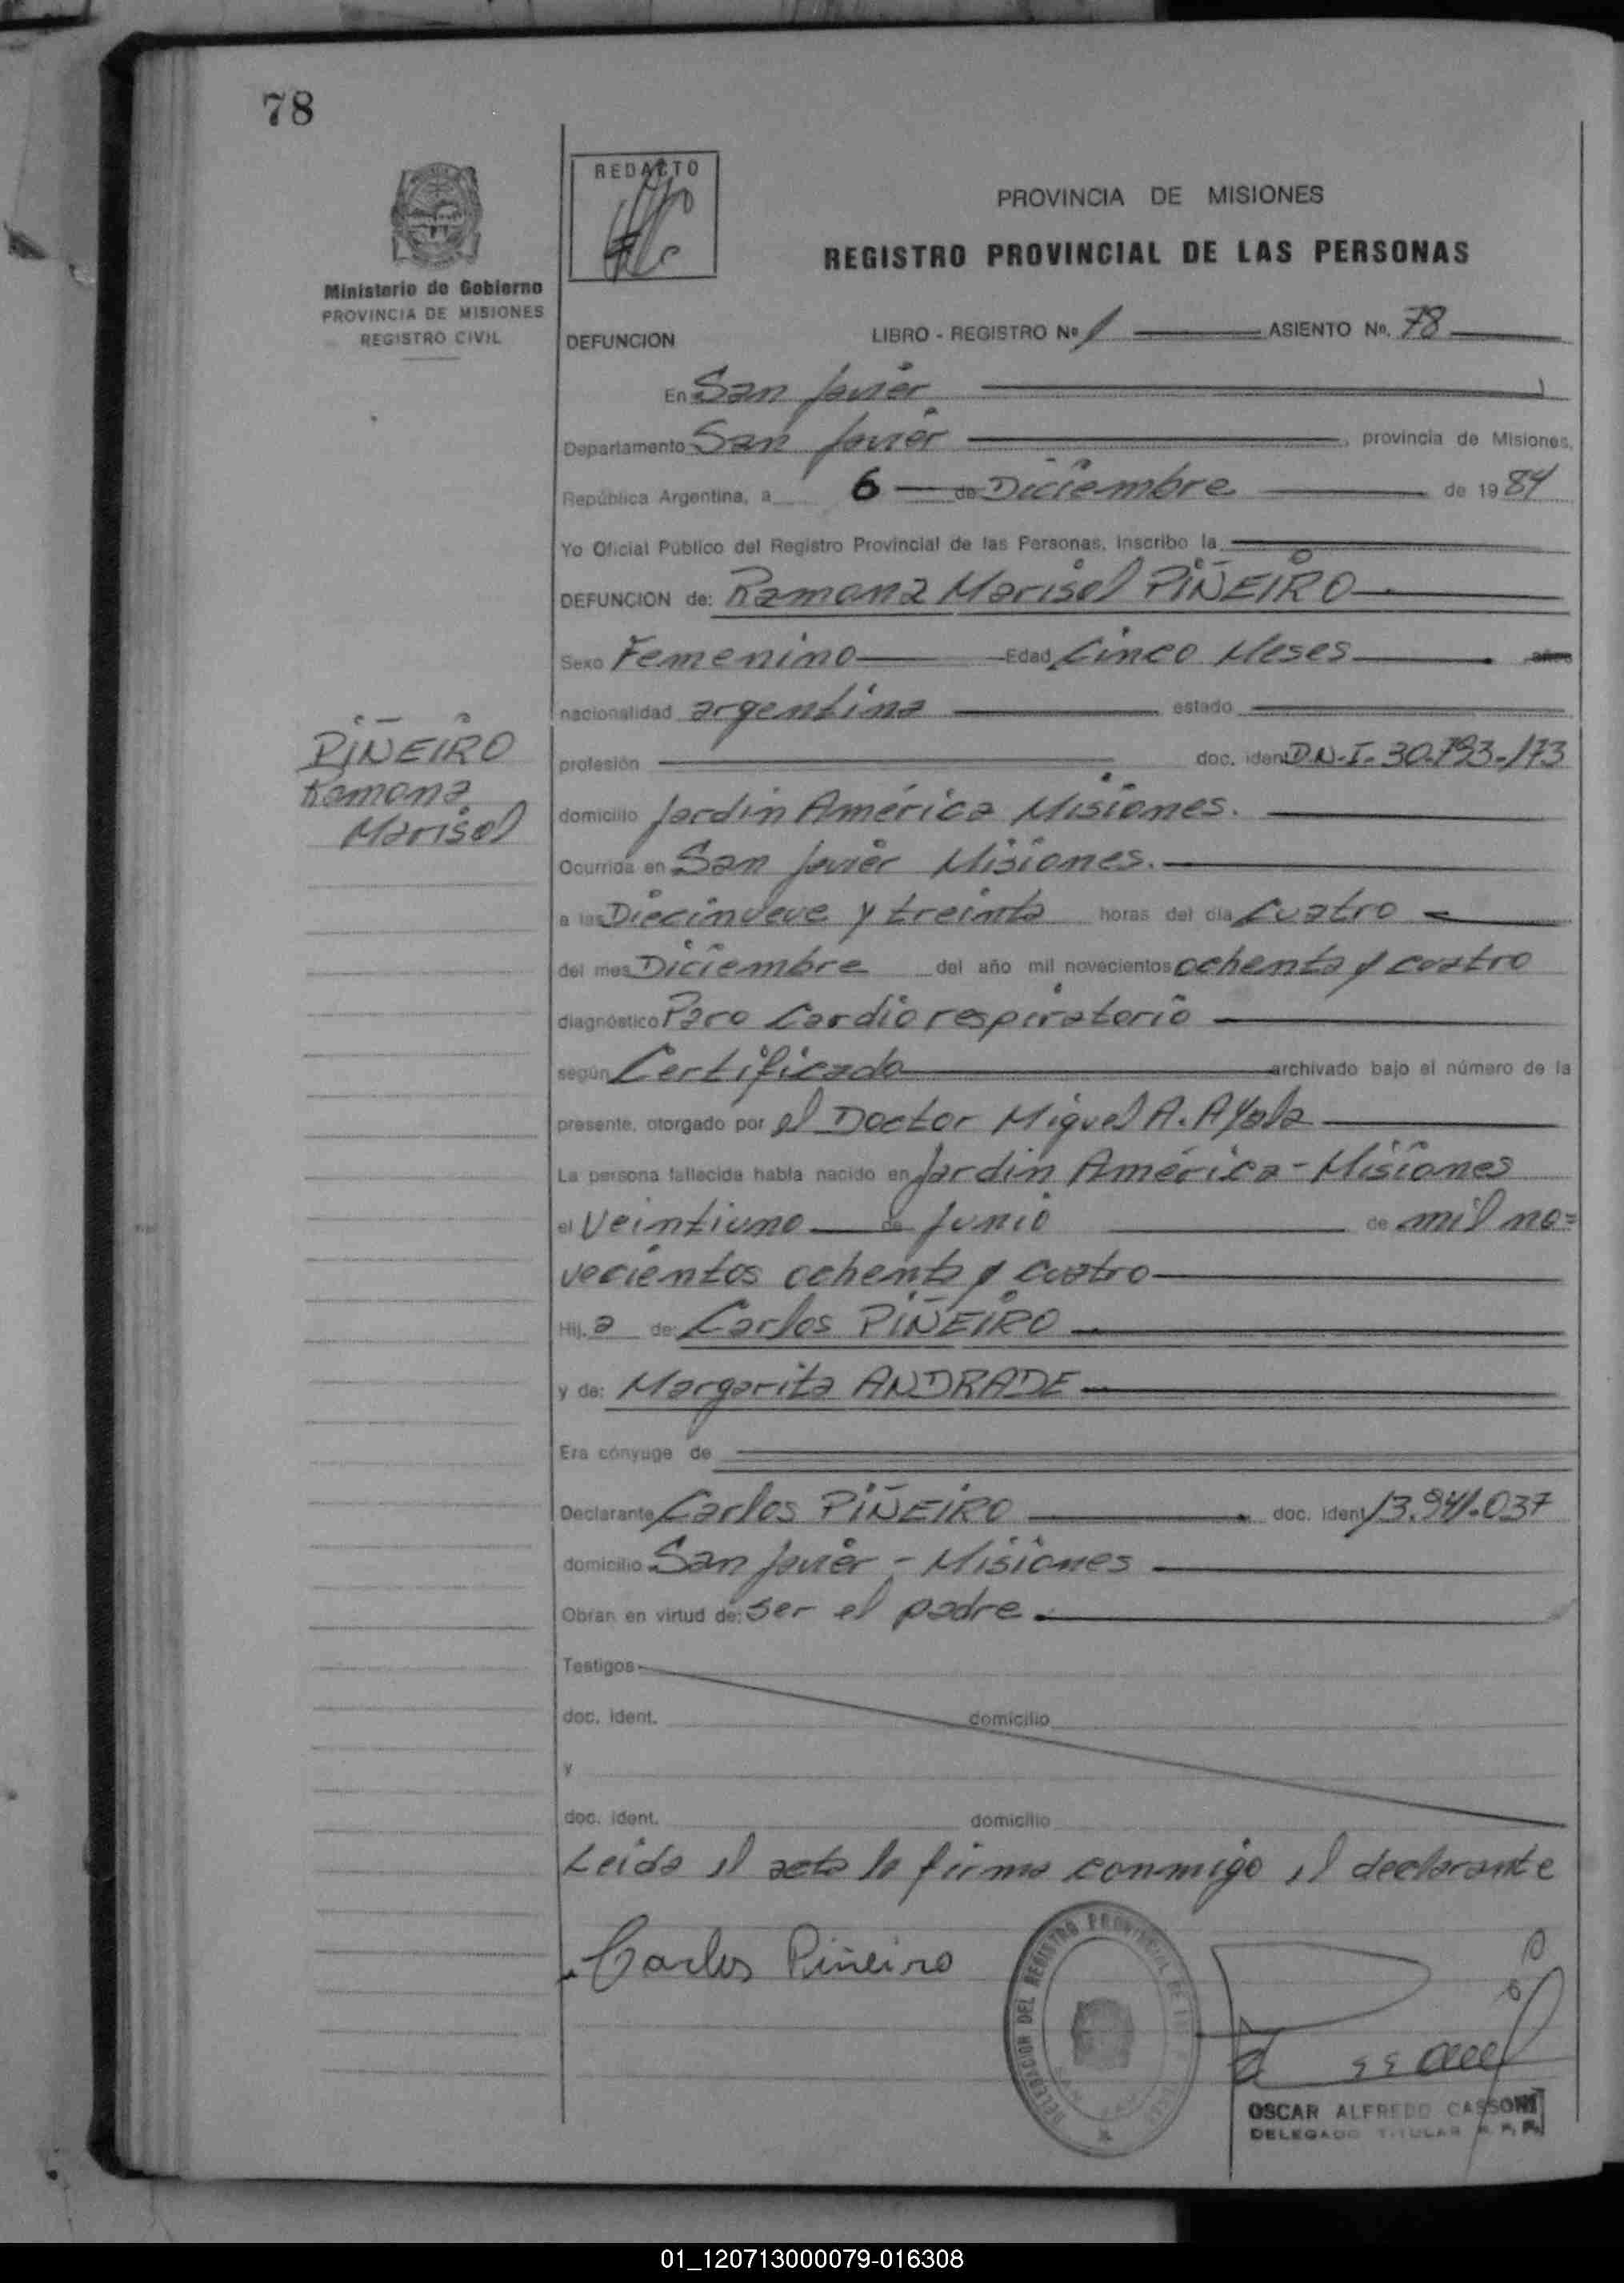 78
REDACTO
PROVINCIA DE MISIONES
REGISTRO PROVINCIAL DE LAS PERSONAS
Ministerio de Gobierno
PROVINCIA DE MISIONES
REGISTRO CIVIL
DEFUNCION LIBRO - REGISTRO Nº 1 ASIENTO Nº. 78
En San Javier
Departamento San Javier, provincia de Misiones,
República Argentina, a 6 de Diciembre de 1984
Yo Oficial Público del Registro Provincial de las Personas, inscribo la
DEFUNCION de: Ramona Marisol PIÑEIRO
Sexo Femenino Edad Cinco Meses años
nacionalidad argentina estado
PIÑEIRO
Ramona
Marisol
profesión doc. ident D.N.I. 30.793.173
domicilio Jardin América Misiones.
Ocurrida en San Javier Misiones.
a las Diecinueve y treinta horas del día Cuatro
del mes Diciembre del año mil novecientos ochenta y cuatro
diagnóstico Paro Cardio respiratorio
según Certificado archivado bajo el número de la
presente, otorgado por el Doctor Miguel A. Ayala
La persona fallecida había nacido en Jardin América - Misiones
el Veintiuno de Junio de mil no=
vecientos ochenta y cuatro
Hij. a de: Carlos PIÑEIRO
y de: Margarita ANDRADE
Era cónyuge de
Declarante Carlos PIÑEIRO doc. ident 13.941.037
domicilio San Javier - Misiones
Obran en virtud de: ser el padre.
Testigos
doc. ident. domicilio
y
doc. ident. domicilio
Leida el acta la firma conmigo el declarante
Carlos Piñeiro
DELEGACION DEL REGISTRO PROVINCIAL DE
OSCAR ALFREDO CASSONI
DELEGADO TITULAR R. P. P.
01_120713000079-016308